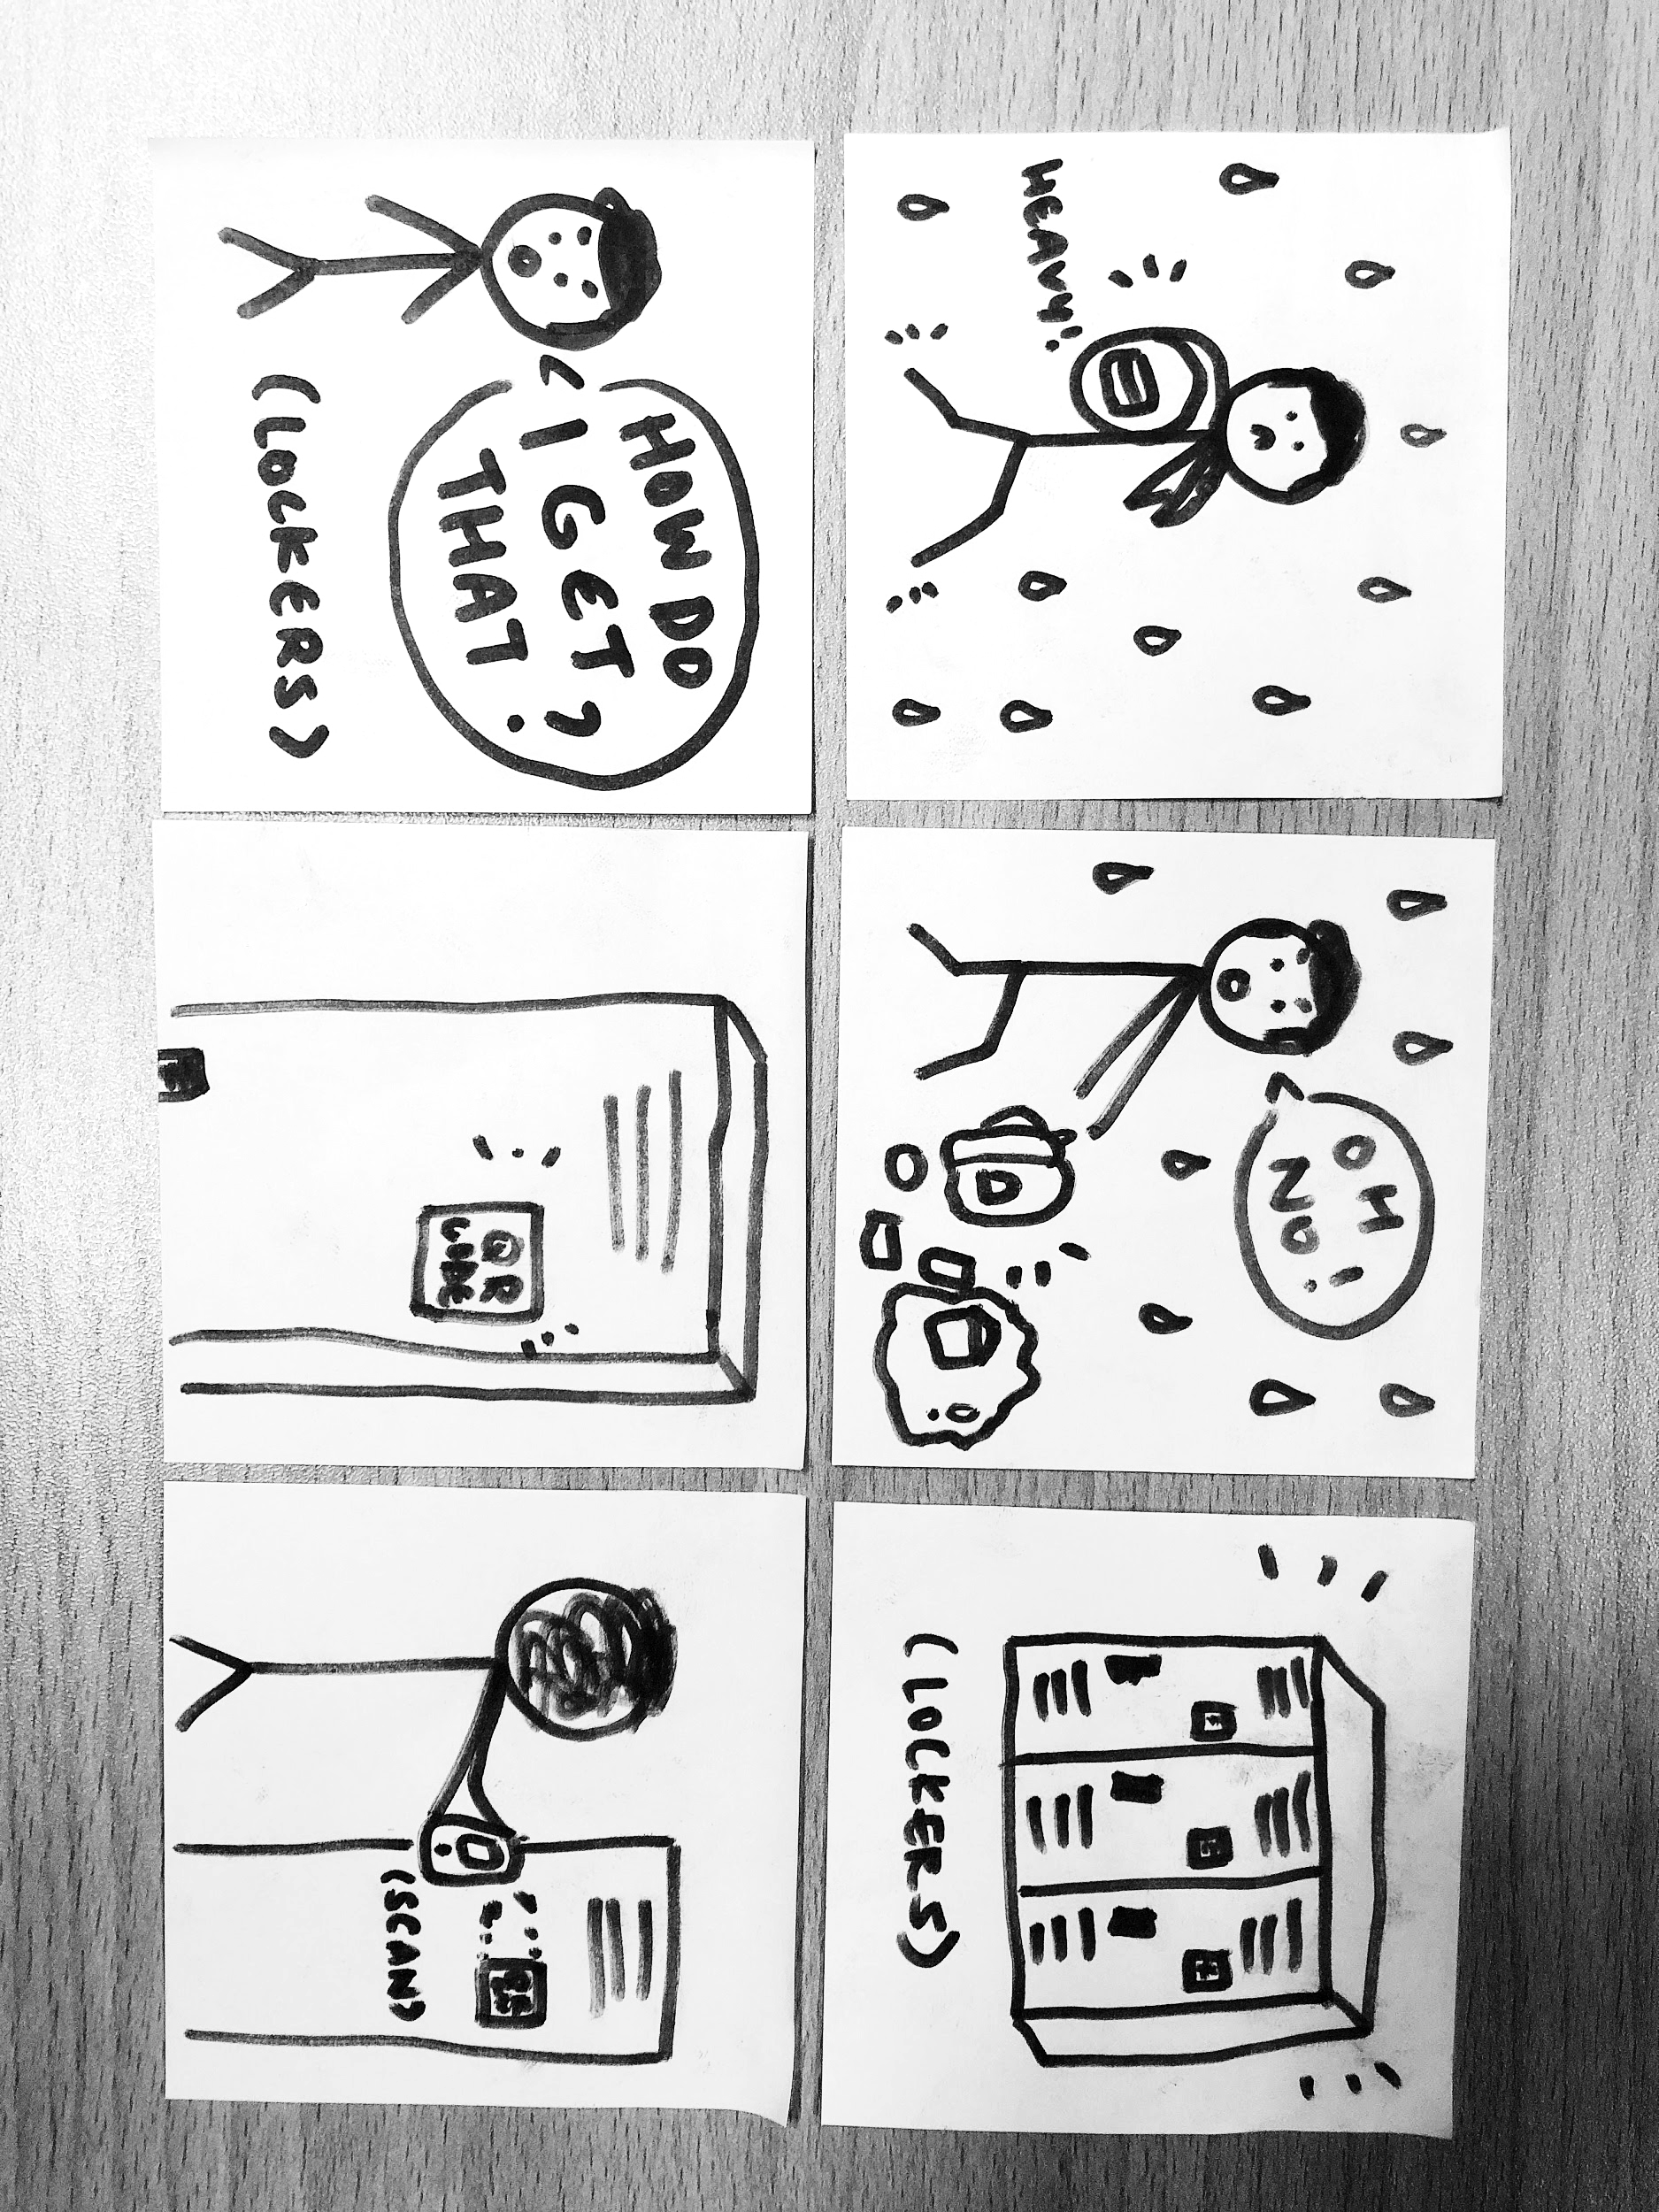 HEAVY!
OH
NO!
(LOCKERS)
HOW DO
I GET
THAT?
(LOCKERS)
QR
CODE
(SCAN)